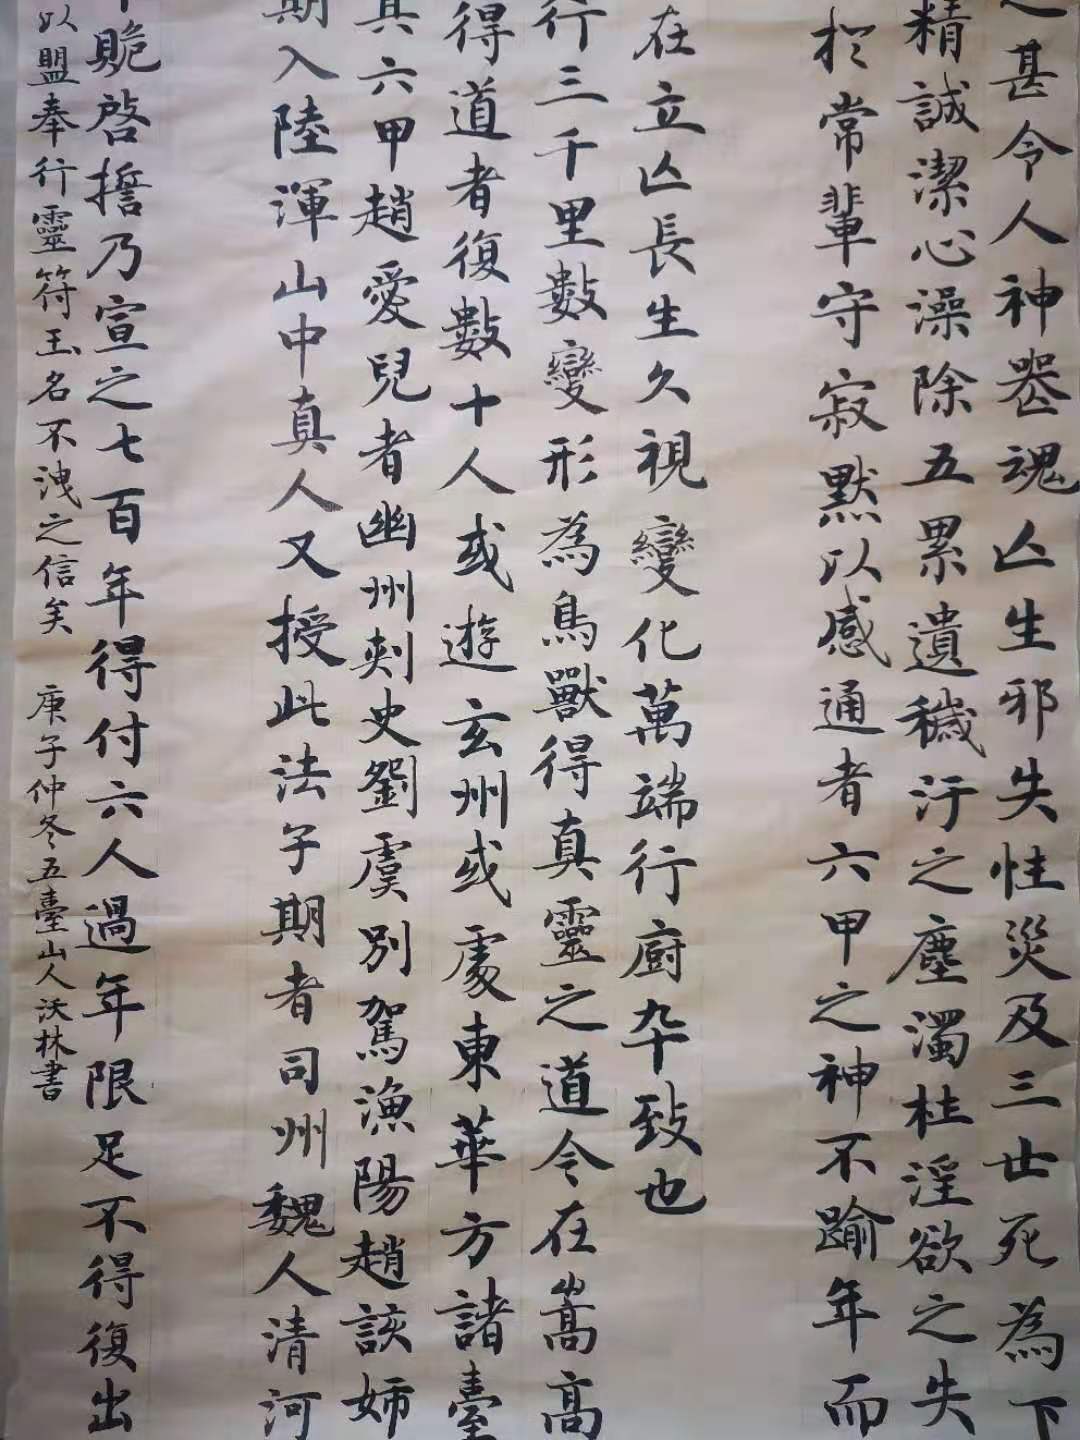 之甚令人神器魂亾生邪失性災及三世死為下
精誠潔心澡除五累遺穢汙之塵濁杜淫欲之失
於常輩守寂默以感通者六甲之神不踰年而
在立亾長生久視變化萬端行廚卒致也
行三千里數變形為鳥獸得真靈之道今在嵩高
得道者復數十人或遊玄州或處東華方諸臺
具六甲趙愛兒者幽州刺史劉虞別駕漁陽趙該姉
期入陸渾山中真人又授此法子期者司州魏人清河
賜啓擔乃宣之七百年得付六人過年限足不得復出
以盟奉行靈符玉名不洩之信矣 庚子仲冬五臺山人沃林書